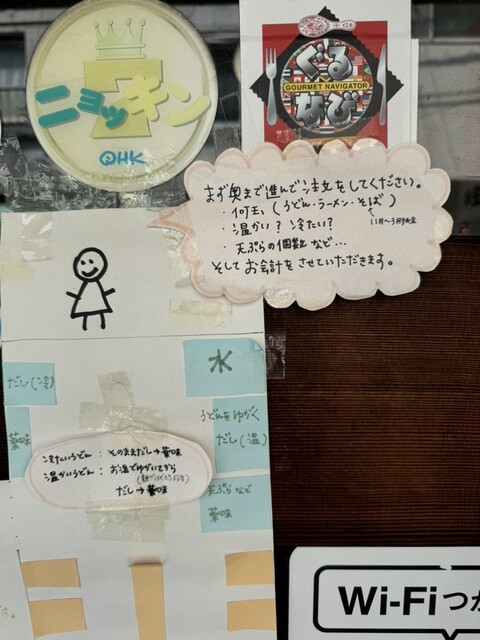 ニョッキン
7
QHK
ぐる
GOURMET NAVIGATOR
なび
まず奥まで進んで注文をしてください。
・何玉、(うどん・ラーメン・そば)
・温かい?冷たい?
・天ぷらの個数など...
そしてお会計をさせていただきます。
水
だし(冷)
うどんをゆがく
だし(温)
薬味
冷たいうどん:そのままだし→薬味
温かいうどん:お湯でゆがいてから
だし→薬味
天ぷらなど
薬味
Wi-Fiつか
す。